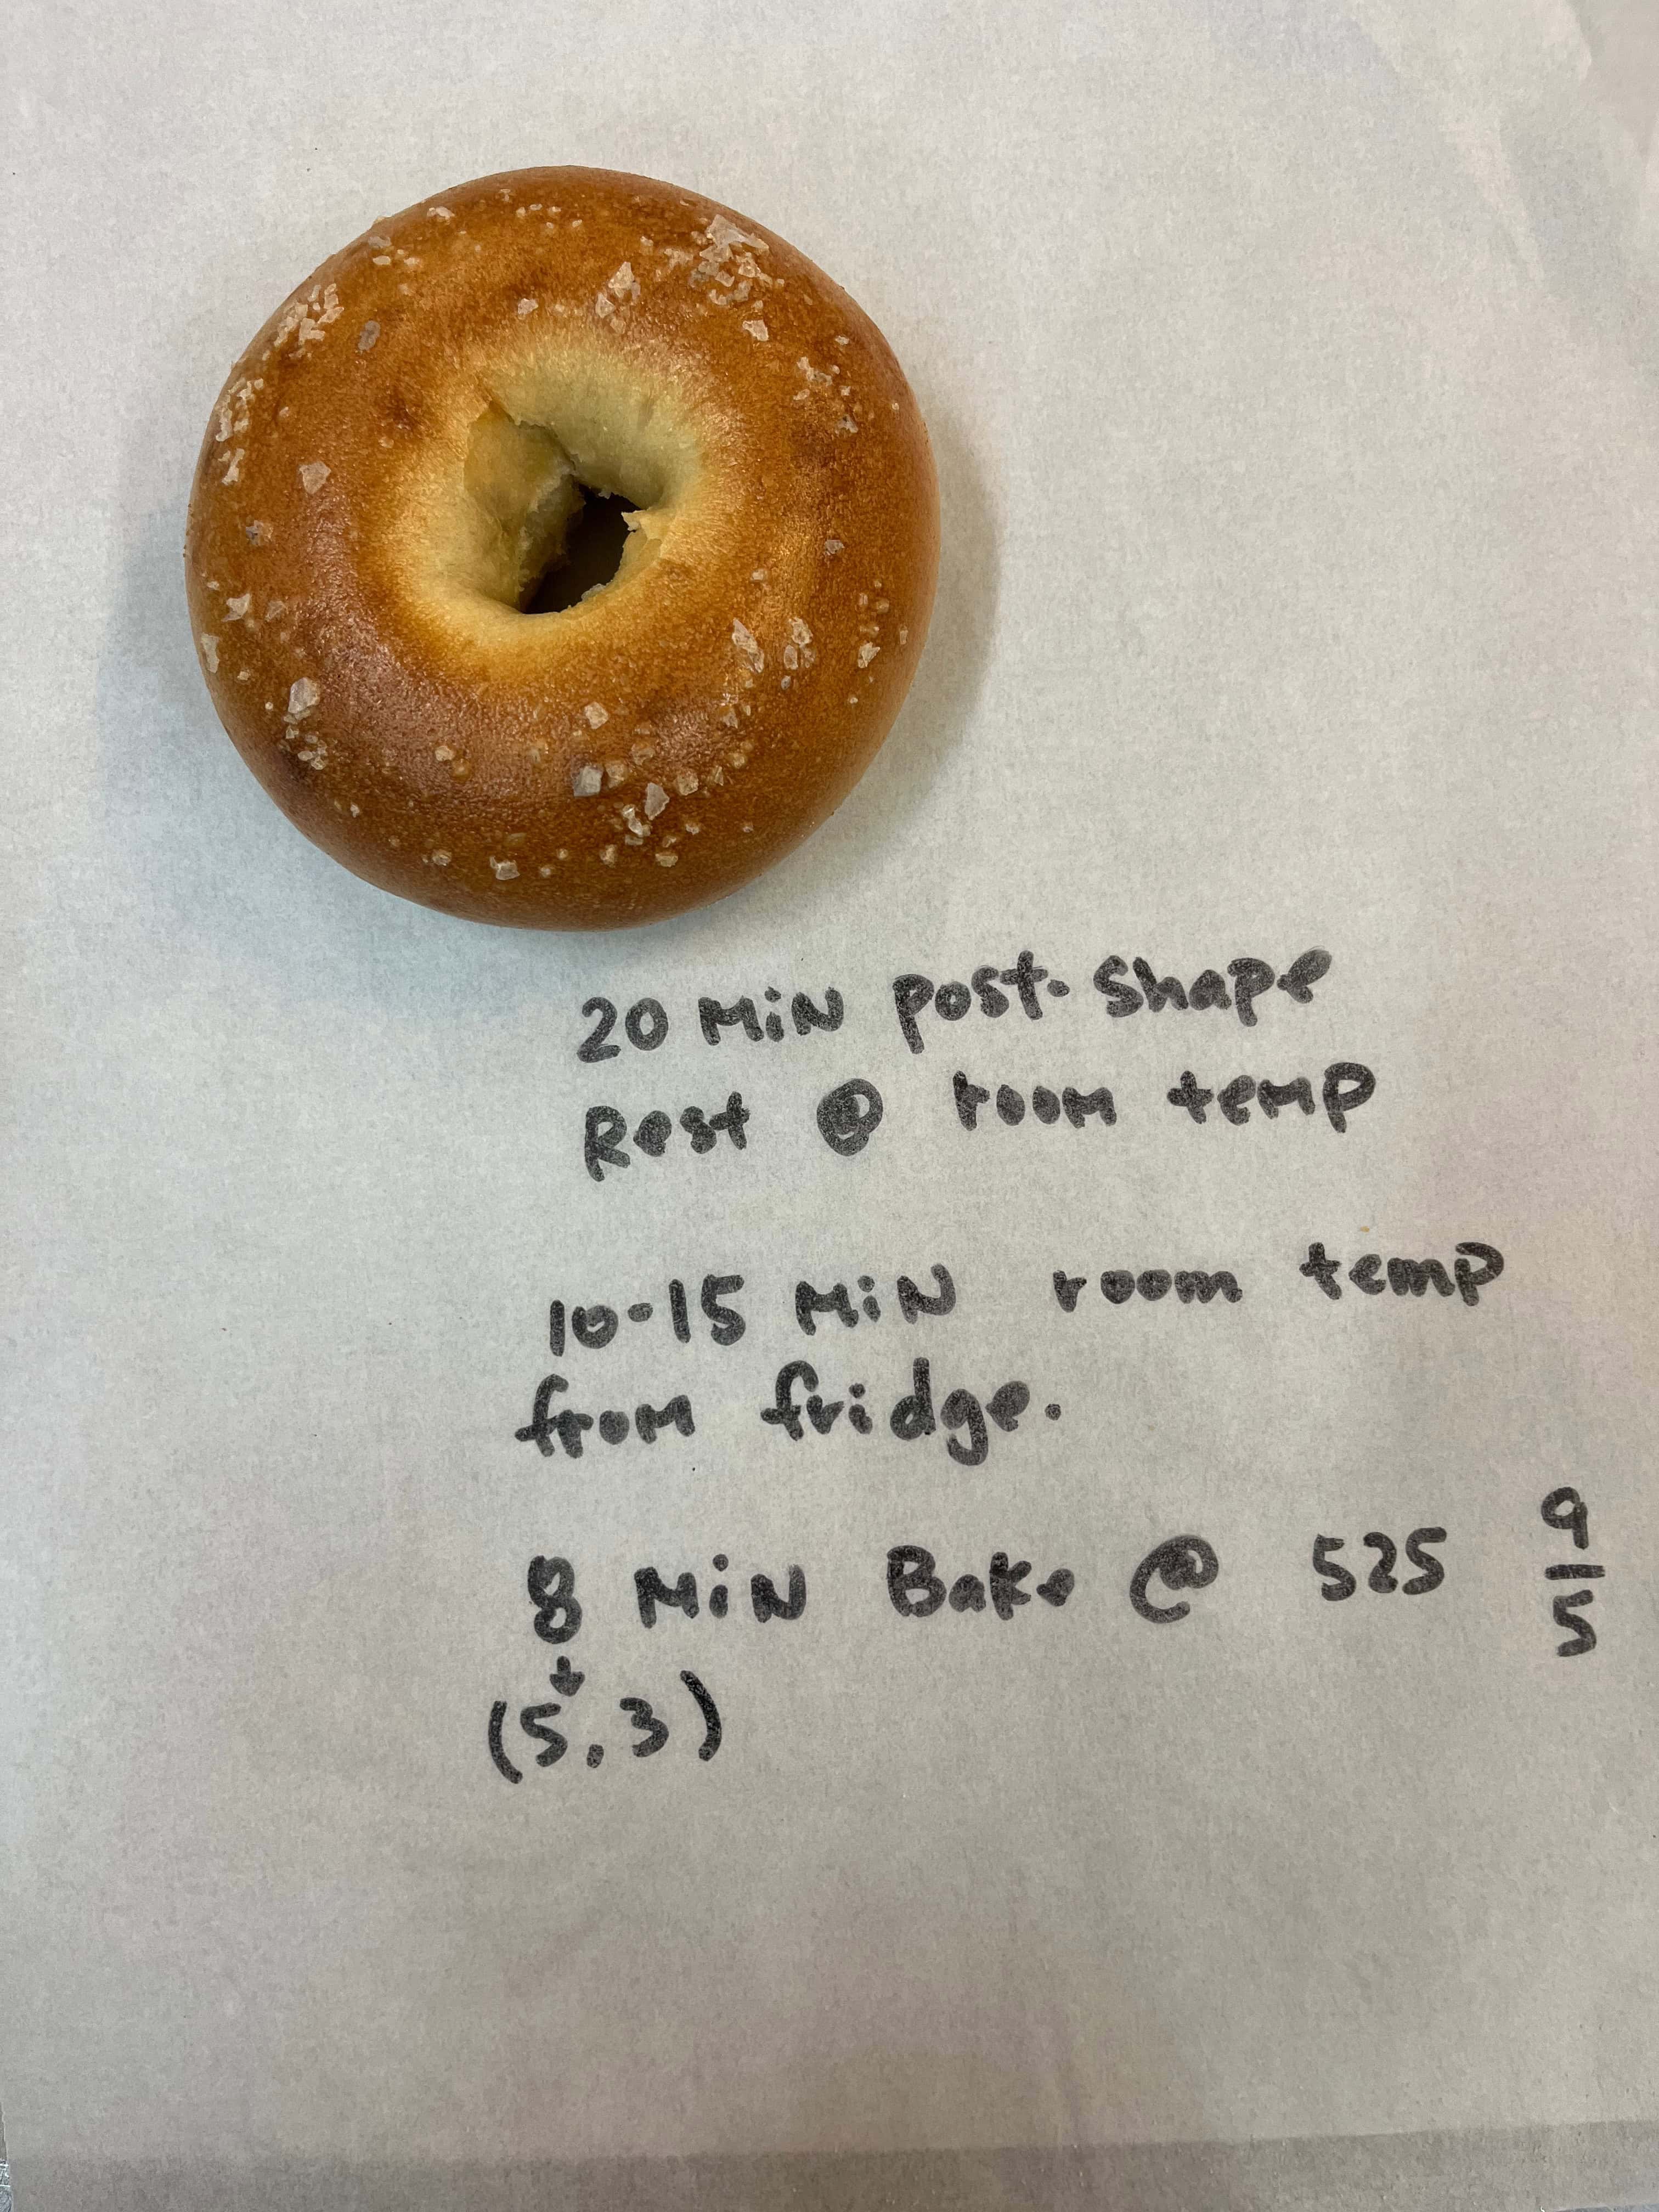 20 MiN post-shape
Rest @ room temp
10-15 MiN room temp
from fridge.
8 MiN Bake @ 525 9/5
↓
(5,3)